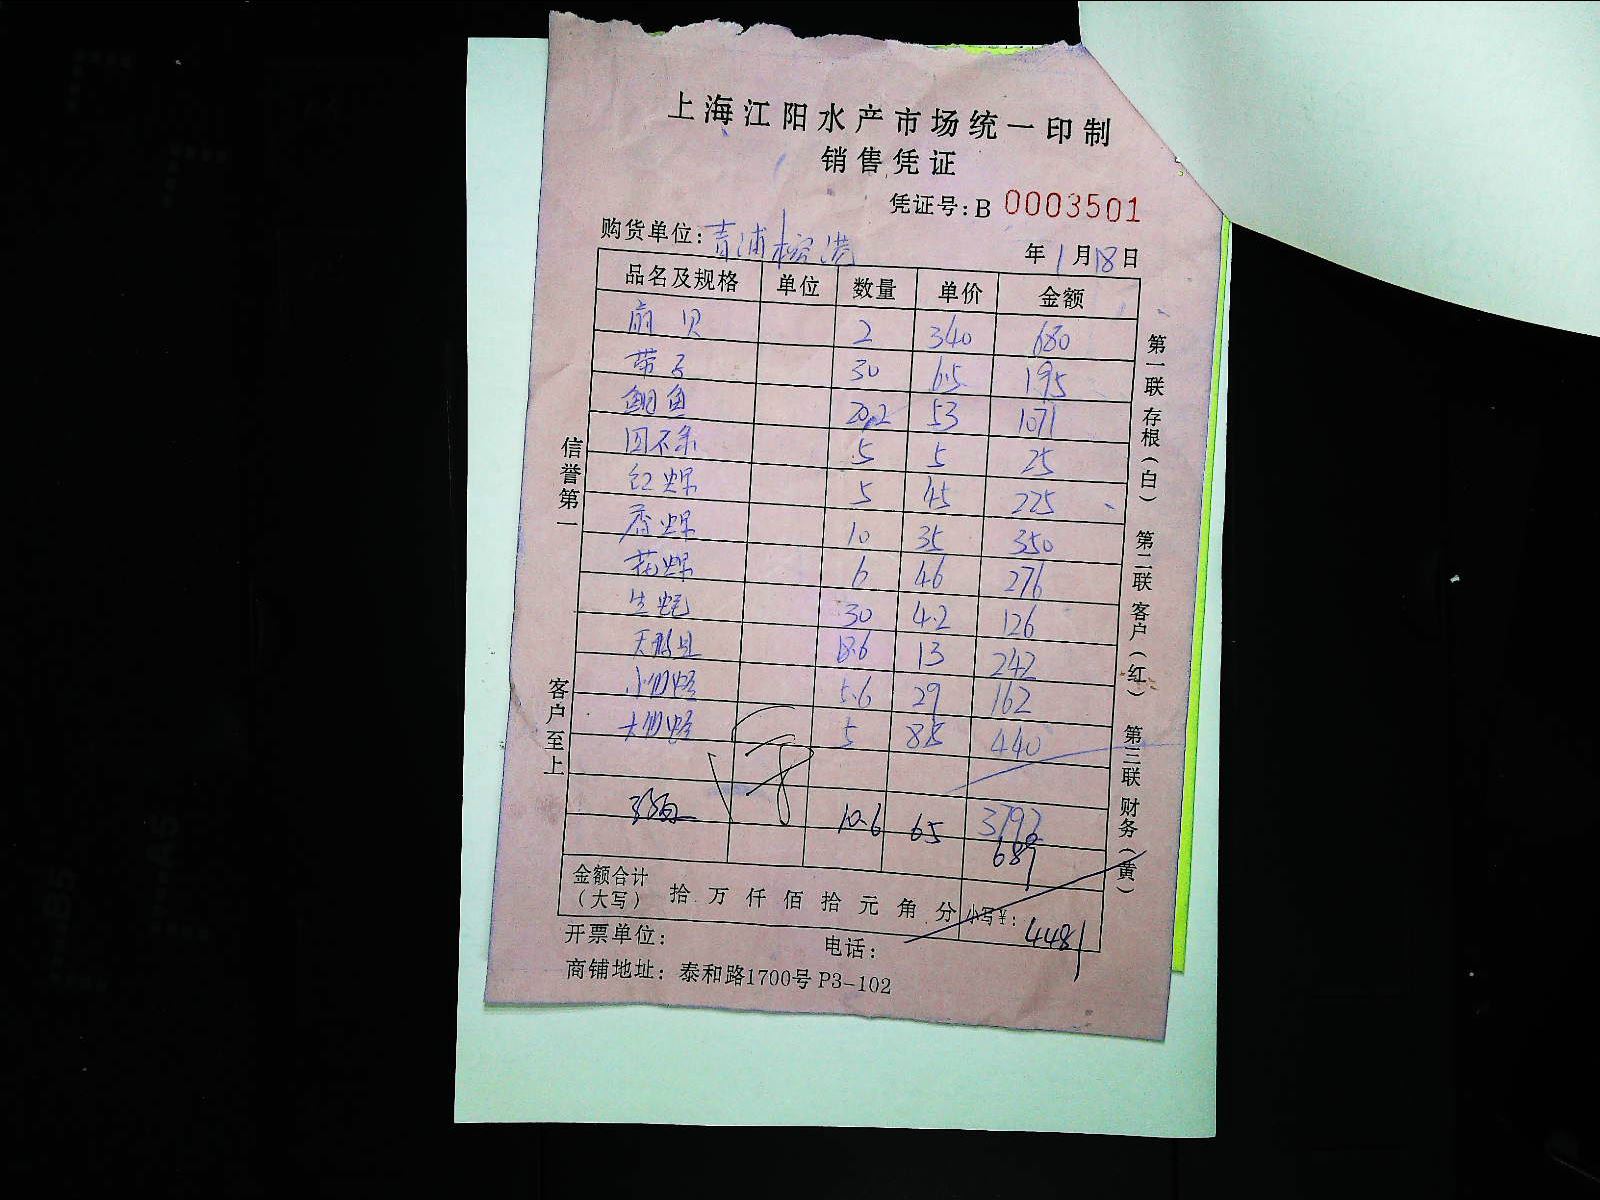 上海江阳水产市场统一印制
销售凭证
凭证号：B 0003501
购货单位：青浦榕港
年1月18日
品名及规格 单位 数量 单价 金额
扇贝 2 340 680
带子 30 6.5 195
鲷鱼 20.2 53 1071
5 5 25
红 5 45 225
香 10 35 350
花 6 46 276
生蚝 30 4.2 126
18.6 13 242
小 5.6 29 162
大 5 85 440
3792
10.6 65 689
金额合计（大写） 拾 万 仟 佰 拾 元 角 分 小写￥：4481
开票单位： 电话：
商铺地址：泰和路1700号 P3-102
信誉第一
客户至上
第一联 存根（白） 第二联 客户（红） 第三联 财务（黄）